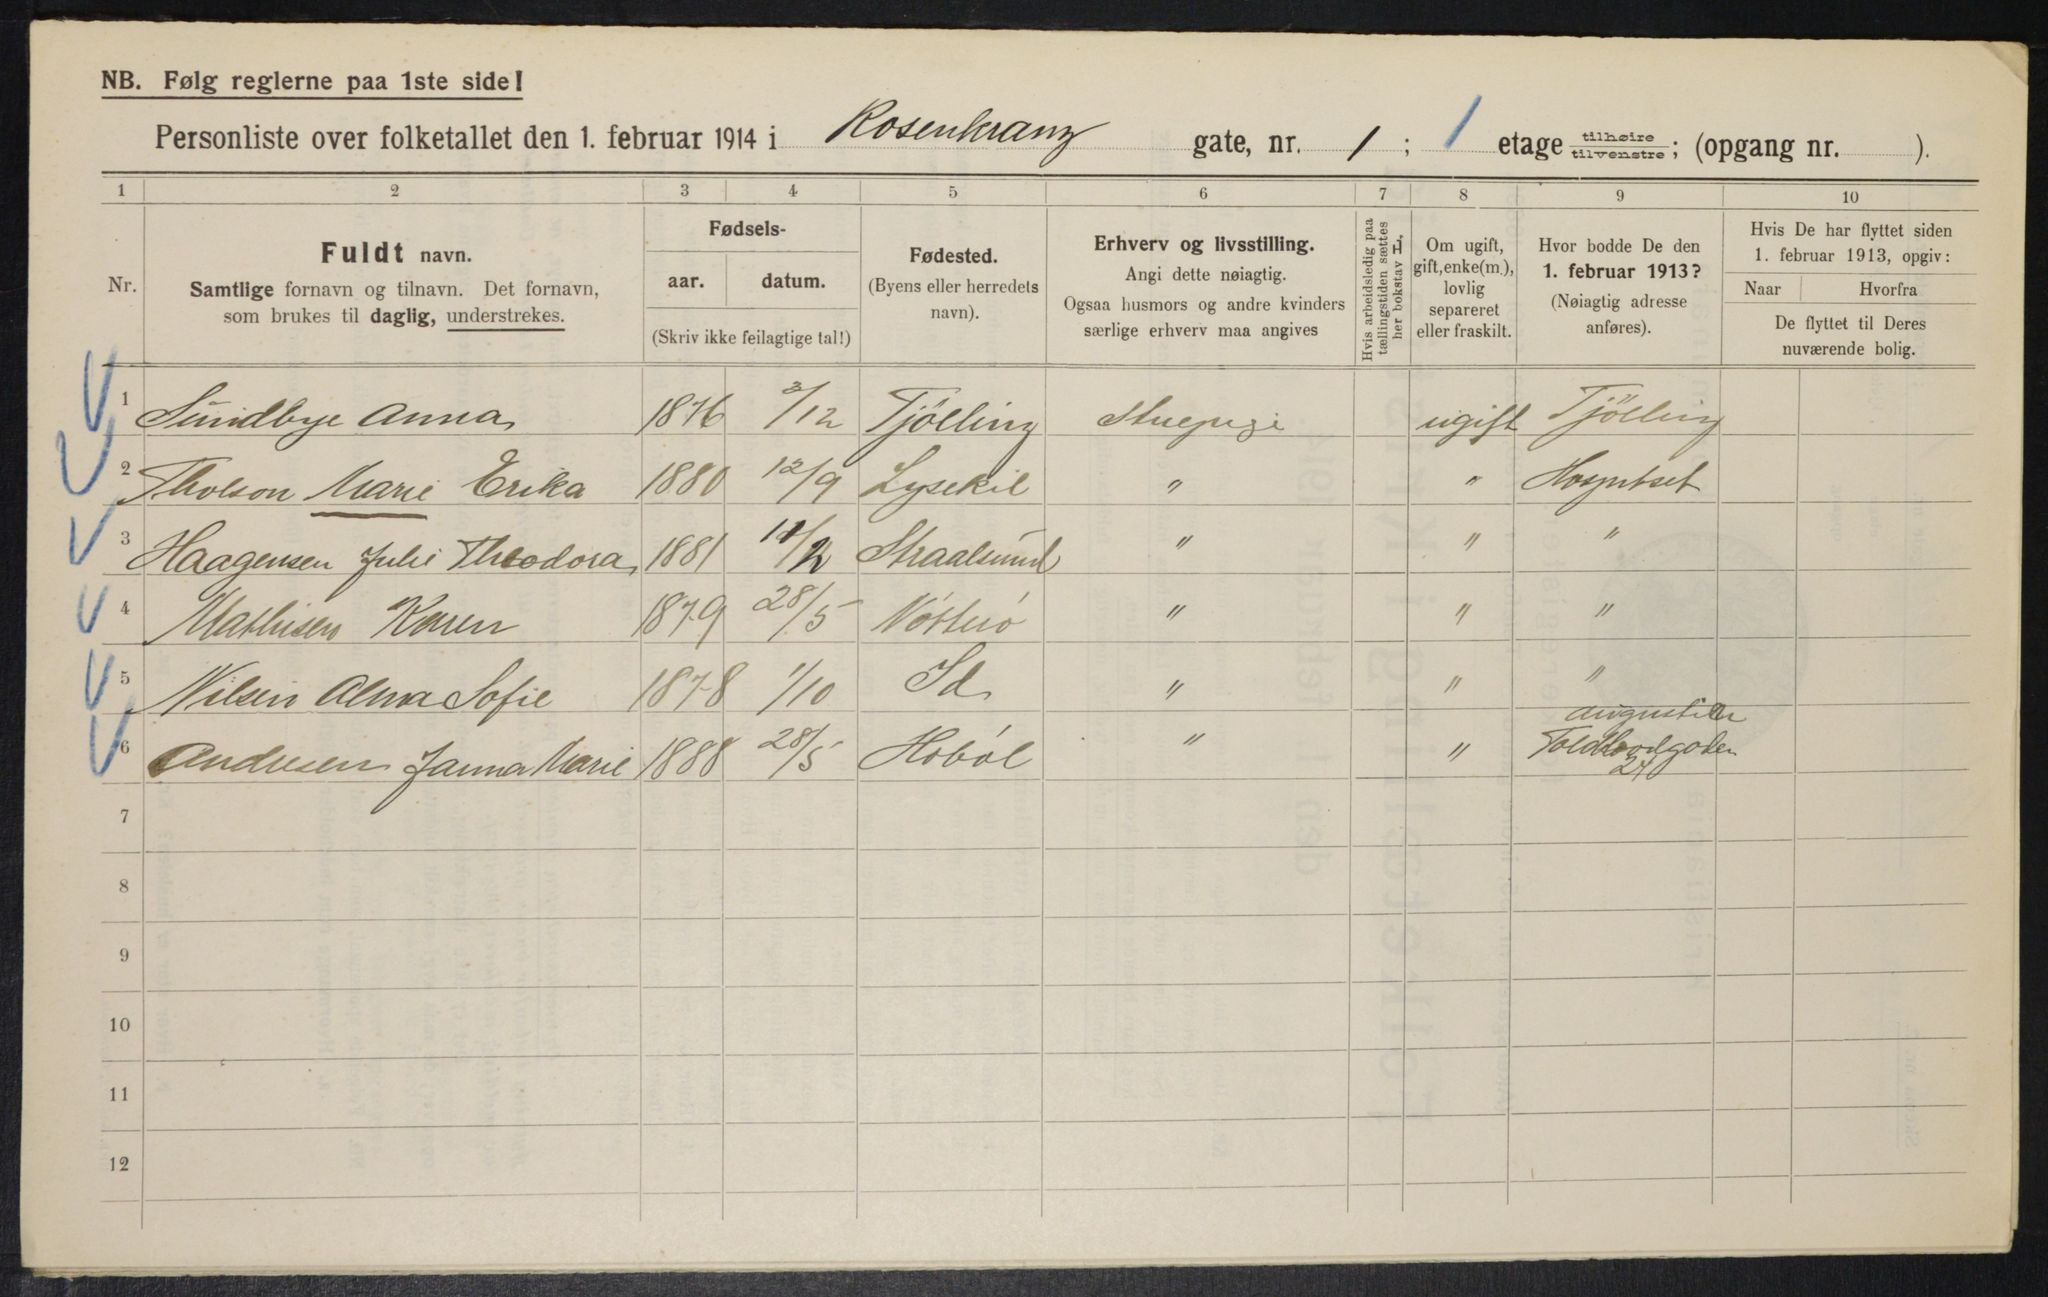 NB. Følg reglerne paa 1ste side!
Personliste over folketallet den 1. februar 1914 i Rosenkranz gate, nr. 1; 1 etage tilhøire/tilvenstre; (opgang nr. ).
1 2 3 4 5 6 7 8 9 10
Nr.
Fuldt navn.
Samtlige fornavn og tilnavn. Det fornavn,
som brukes til daglig, understrekes.
Fødsels-
aar. datum.
(Skriv ikke feilagtige tal!)
Fødested.
(Byens eller herredets
navn).
Erhverv og livsstilling.
Angi dette nøiagtig.
Ogsaa husmors og andre kvinders
særlige erhverv maa angives
Hvis arbeidsledig paa
tællingstiden sættes
her bokstav L.
Om ugift,
gift, enke(m.),
lovlig
separeret
eller fraskilt.
Hvor bodde De den
1. februar 1913?
(Nøiagtig adresse
anføres).
Hvis De har flyttet siden
1. februar 1913, opgiv:
Naar Hvorfra
De flyttet til Deres
nuværende bolig.
1 Sundbye Anna 1876 3/12 Tjölling Stuepige ugift Tjölling
2 Tholson Marie Erika 1880 12/9 Lysekil " "
3 Haagensen Julie Theodora 1881 Straalsund " " "
4 Mathisen Karen 1879 28/5 Nötterö " " "
5 Nilsen Alma Sofie 1878 1/10 Id " " "
6 Andresen Janna Marie 1888 28/5 Hoböl " " Toldbodgaden
24
7
8
9
10
11
12